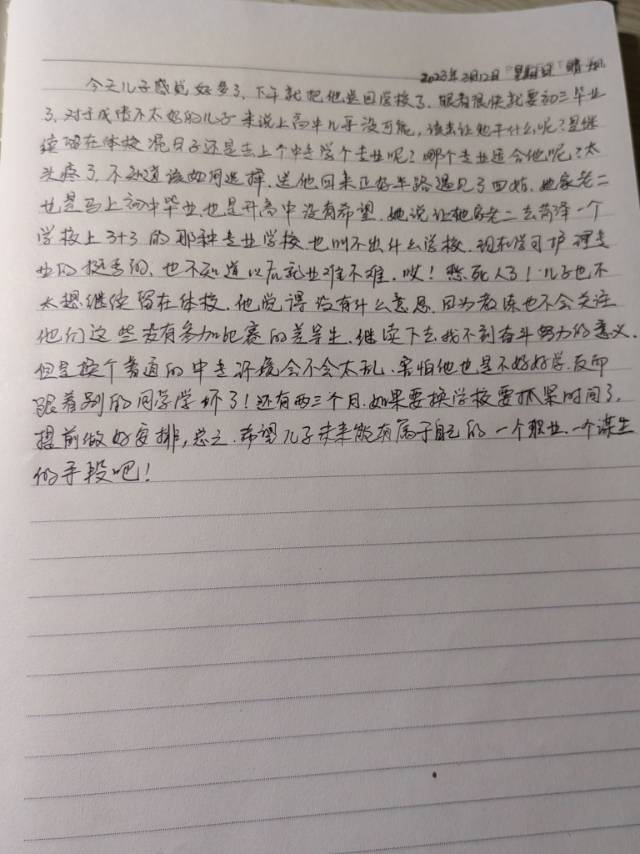 2023年3月12日 星期日 晴
今天儿子感觉好多了，下午就把他送回学校了。眼看很快就要初三毕业
了，对于成绩不太好的儿子来说上高中几乎没可能，该看让他干什么呢？是继
续留在体校混日子还是去上个中专学个专业呢？哪个专业适合他呢？太
头疼了，不知道该如何选择，送他回来正好半路遇见了四姑，她家老二
也是马上初中毕业，也是升高中没有希望，她说让她家老二去菏泽一个
学校上3+3的那种专业学校，也叫不出什么学校，现在学习护理专
业的挺多的，也不知道以后就业难不难，哎！愁死人了！儿子也不
太想继续留在体校，他觉得没有什么意思，因为教练也不会关注
他们这些没有参加比赛的差等生，继续下去，找不到奋斗努力的意义，
但是换个普通的中专环境会不会太乱，害怕他也是不好好学，反而
跟着别的同学学坏了！还有两三个月，如果要换学校要抓紧时间了，
提前做好安排，总之，希望儿子未来能有属于自己的一个职业，一个谋生
的手段吧！